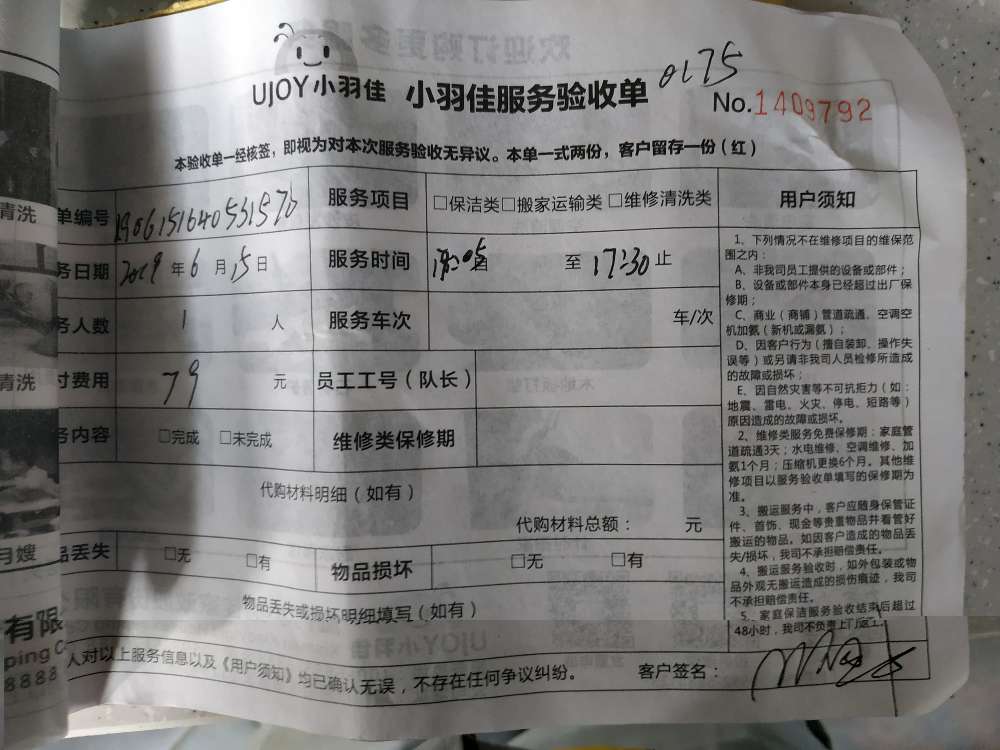 0175
UJOY小羽佳 小羽佳服务验收单
No.1409792
本验收单一经核签，即视为对本次服务验收无异议。本单一式两份，客户留存一份（红）
单编号 服务项目 □保洁类□搬家运输类 □维修清洗类 用户须知
务日期 2019 年 6 月 15 日 服务时间 至 17:30 止
务人数 1 人 服务车次 车/次
付费用 79 元 员工工号（队长）
务内容 □完成 □未完成 维修类保修期
代购材料明细（如有）
代购材料总额： 元
品丢失 □无 □有 物品损坏 □无 □有
物品丢失或损坏明细填写（如有）
1、下列情况不在维修项目的维保范
围之内：
A、非我司员工提供的设备或部件；
B、设备或部件本身已经超过出厂保
修期；
C、商业（商铺）管道疏通、空调空
机加氨（新机或漏氨）；
D、因客户行为（擅自装卸、操作失
误等）或另请非我司人员检修所造成
的故障或损坏；
E、因自然灾害等不可抗拒力（如：
地震、雷电、火灾、停电、短路等）
原因造成的故障或损坏。
2、维修类服务免费保修期：家庭管
道疏通3天；水电维修、空调维修、加
氨1个月；压缩机更换6个月。其他维
修项目以服务验收单填写的保修期为
准。
3、搬运服务中，客户应随身保管证
件、首饰、现金等贵重物品并看管好
搬运的物品。如因客户造成的物品丢
失/损坏，我司不承担赔偿责任。
4、搬运服务验收时，如外包装或物
品外观无搬运造成的损伤痕迹，我司
不承担赔偿责任。
5、家庭保洁服务验收结束后超过
48小时，我司不负责上门返工。
人对以上服务信息以及《用户须知》均已确认无误，不存在任何争议纠纷。 客户签名：
清洗
清洗
月嫂
有限
ping C
8888